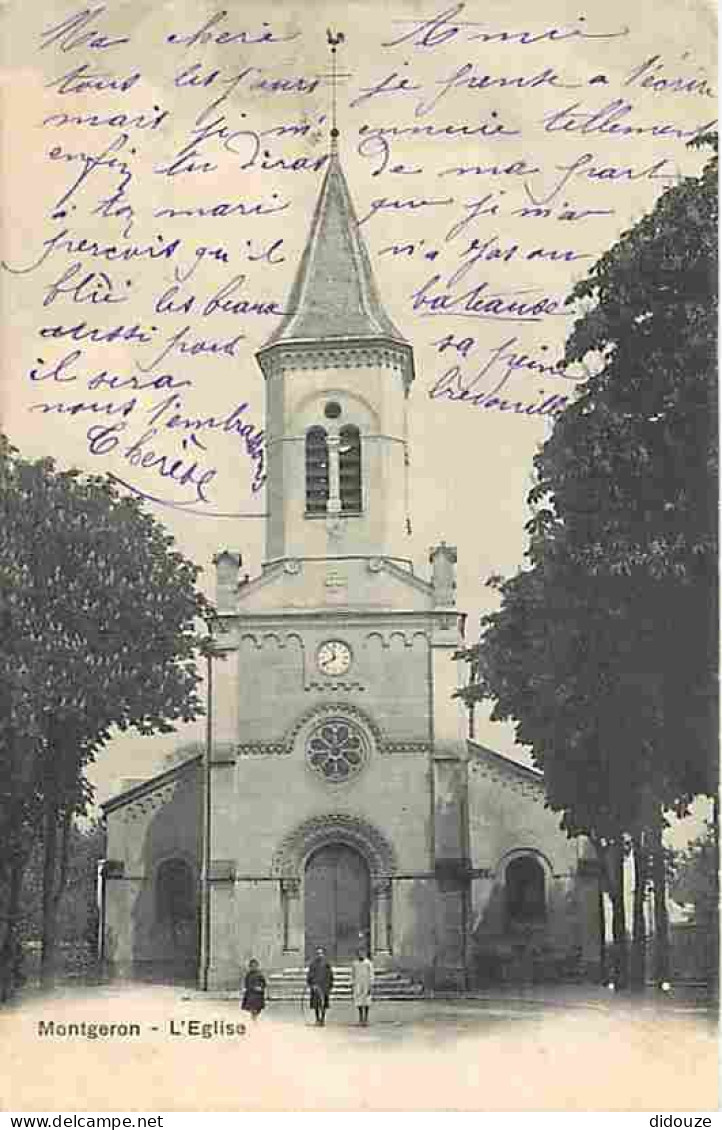 Ma chère Amie
tous les jours je prente a t'écrire
mais j'ai m'ennuerie tellement
enfin tu diras de ma part
à toi mari que j'ai m'a
perçois qu'il n'a pas ou
blié les beau bateause
aussi pour sa peine
il sera bredouille
nous t'embrassons
Thérèse
Montgeron - L'Eglise
didouze